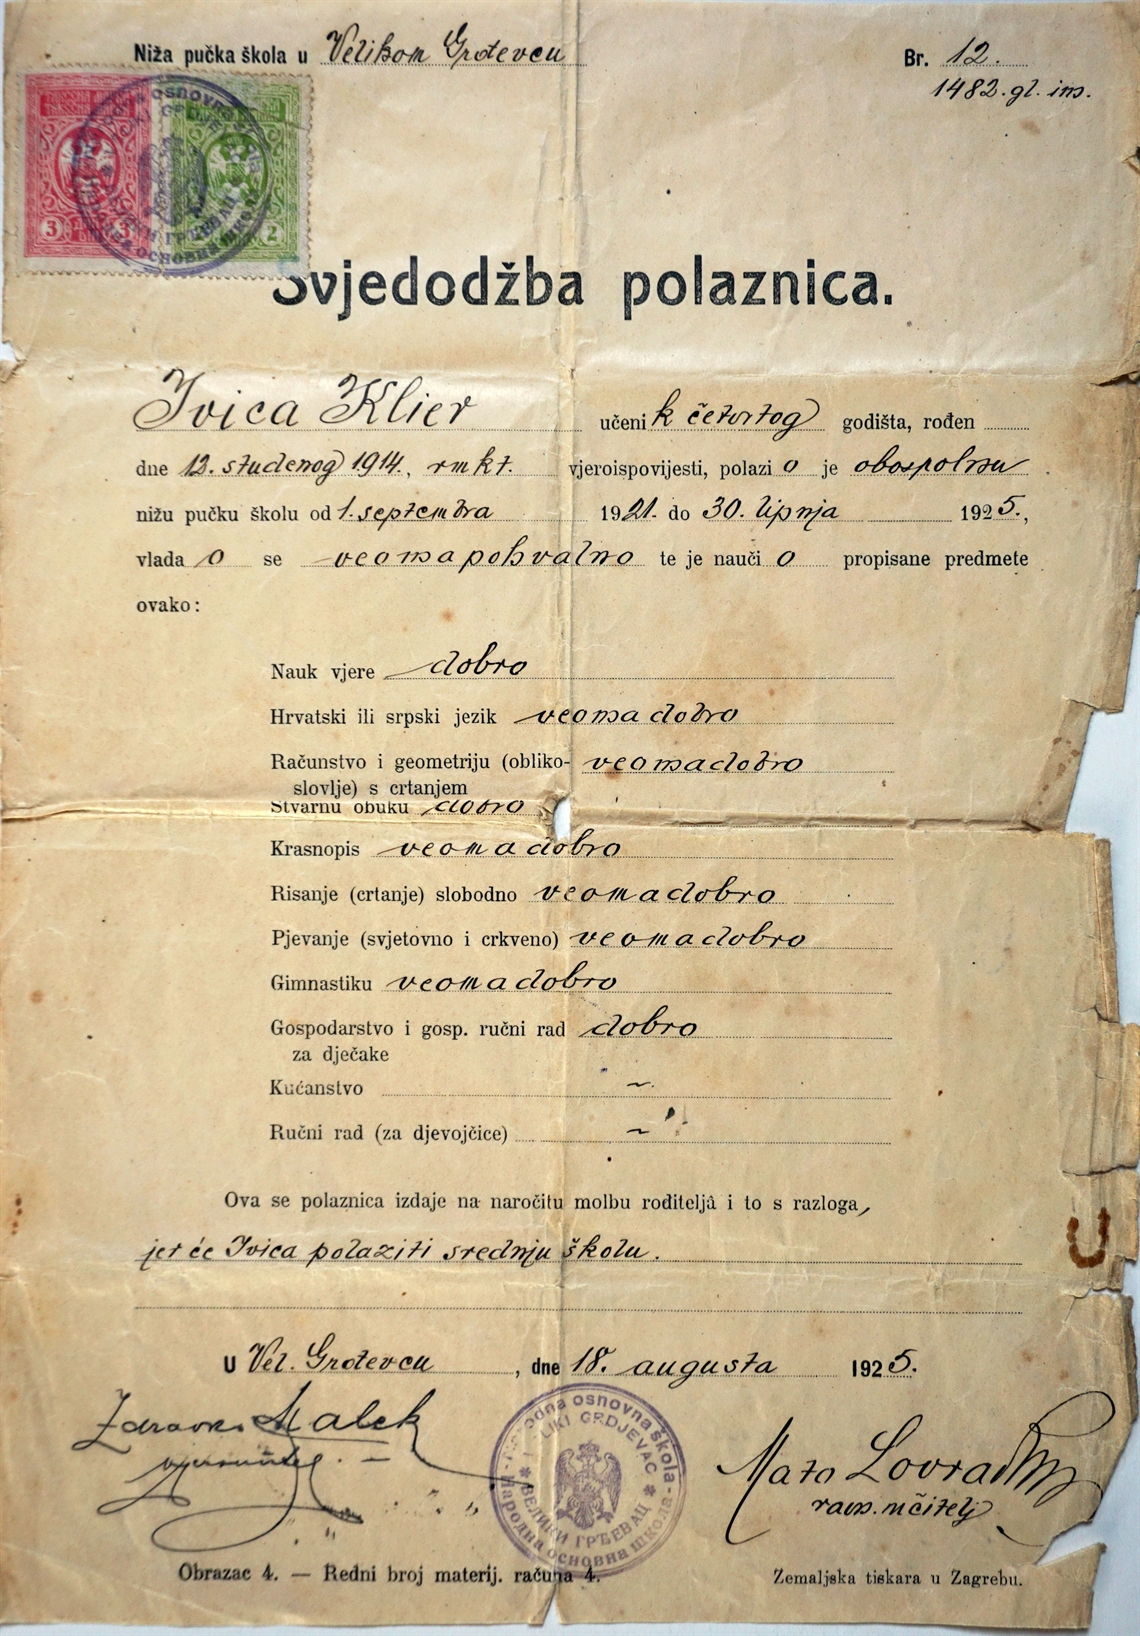 Niža pučka škola u Velikom Grđevcu
Br. 12.
1482. gl. im.
3 3 2
Svjedodžba polaznica.
Ivica Klier učenik četvrtog godišta, rođen
dne 12. studenog 1914., rmkt. vjeroispovijesti, polazio je obospolnu
nižu pučku školu od 1. septembra 1921. do 30. lipnja 1925.,
vladao se veoma pohvalno te je naučio propisane predmete
ovako:
Nauk vjere dobro
Hrvatski ili srpski jezik veoma dobro
Računstvo i geometriju (obliko- veoma dobro
slovlje) s crtanjem
Stvarnu obuku dobro
Krasnopis veoma dobro
Risanje (crtanje) slobodno veoma dobro
Pjevanje (svjetovno i crkveno) veoma dobro
Gimnastiku veoma dobro
Gospodarstvo i gosp. ručni rad dobro
za dječake
Kućanstvo ~
Ručni rad (za djevojčice) ~
Ova se polaznica izdaje na naročitu molbu roditelja i to s razloga,
jer će Ivica polaziti srednju školu.
U Vel. Grđevcu, dne 18. augusta 1925.
Zdravko Malek
vjeroučitelj.
Narodna osnovna škola
VELIKI GRDJEVAC
ВЕЛИКИ ГРЂЕВАЦ
Народна основна школа
Mato Lovrak
rav. učitelj
Obrazac 4. — Redni broj materij. računa 4.
Zemaljska tiskara u Zagrebu.